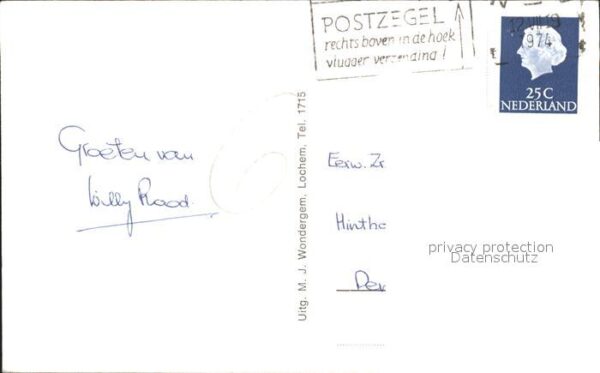 POSTZEGEL
rechts boven in de hoek
vlugger verzending!
1974
25C
NEDERLAND
Groeten van
Willy Raad.
Uitg. M. J. Wondergem, Lochem, Tel. 1715
Eerw. Zr.
Hintho
Den
privacy protection
Datenschutz